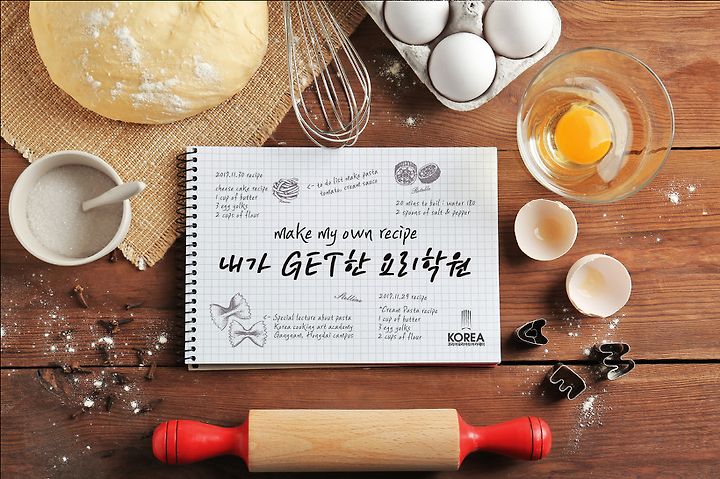 2019.11.30 recipe
cheese cake recipe
1 cup of butter
3 egg yolks
2 cups of flour
<- to do list make pasta
tomato, cream sauce
20 mins to boil : water 180
2 spoons of salt & pepper
make my own recipe
내가 GET한 요리학원
<- Special lecture about pasta
Korea cooking art academy
Gangnam, Hongdai campus
2019.11.29 recipe
*Cream Pasta recipe
1 cup of butter
3 egg yolks
2 cups of flour
KOREA